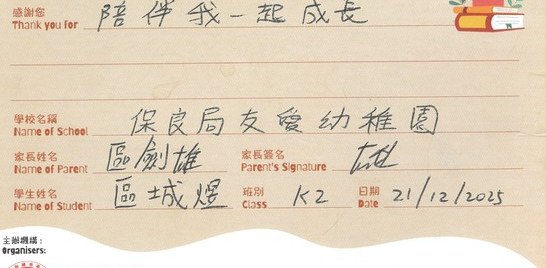 感謝您 Thank you for 陪伴我一起成長
學校名稱 Name of School 保良局友愛幼稚園
家長姓名 Name of Parent 區劍雄 家長簽名 Parent's Signature
學生姓名 Name of Student 區城煜 班別 Class K2 日期 Date 21/12/2025
主辦機構：
Organisers: